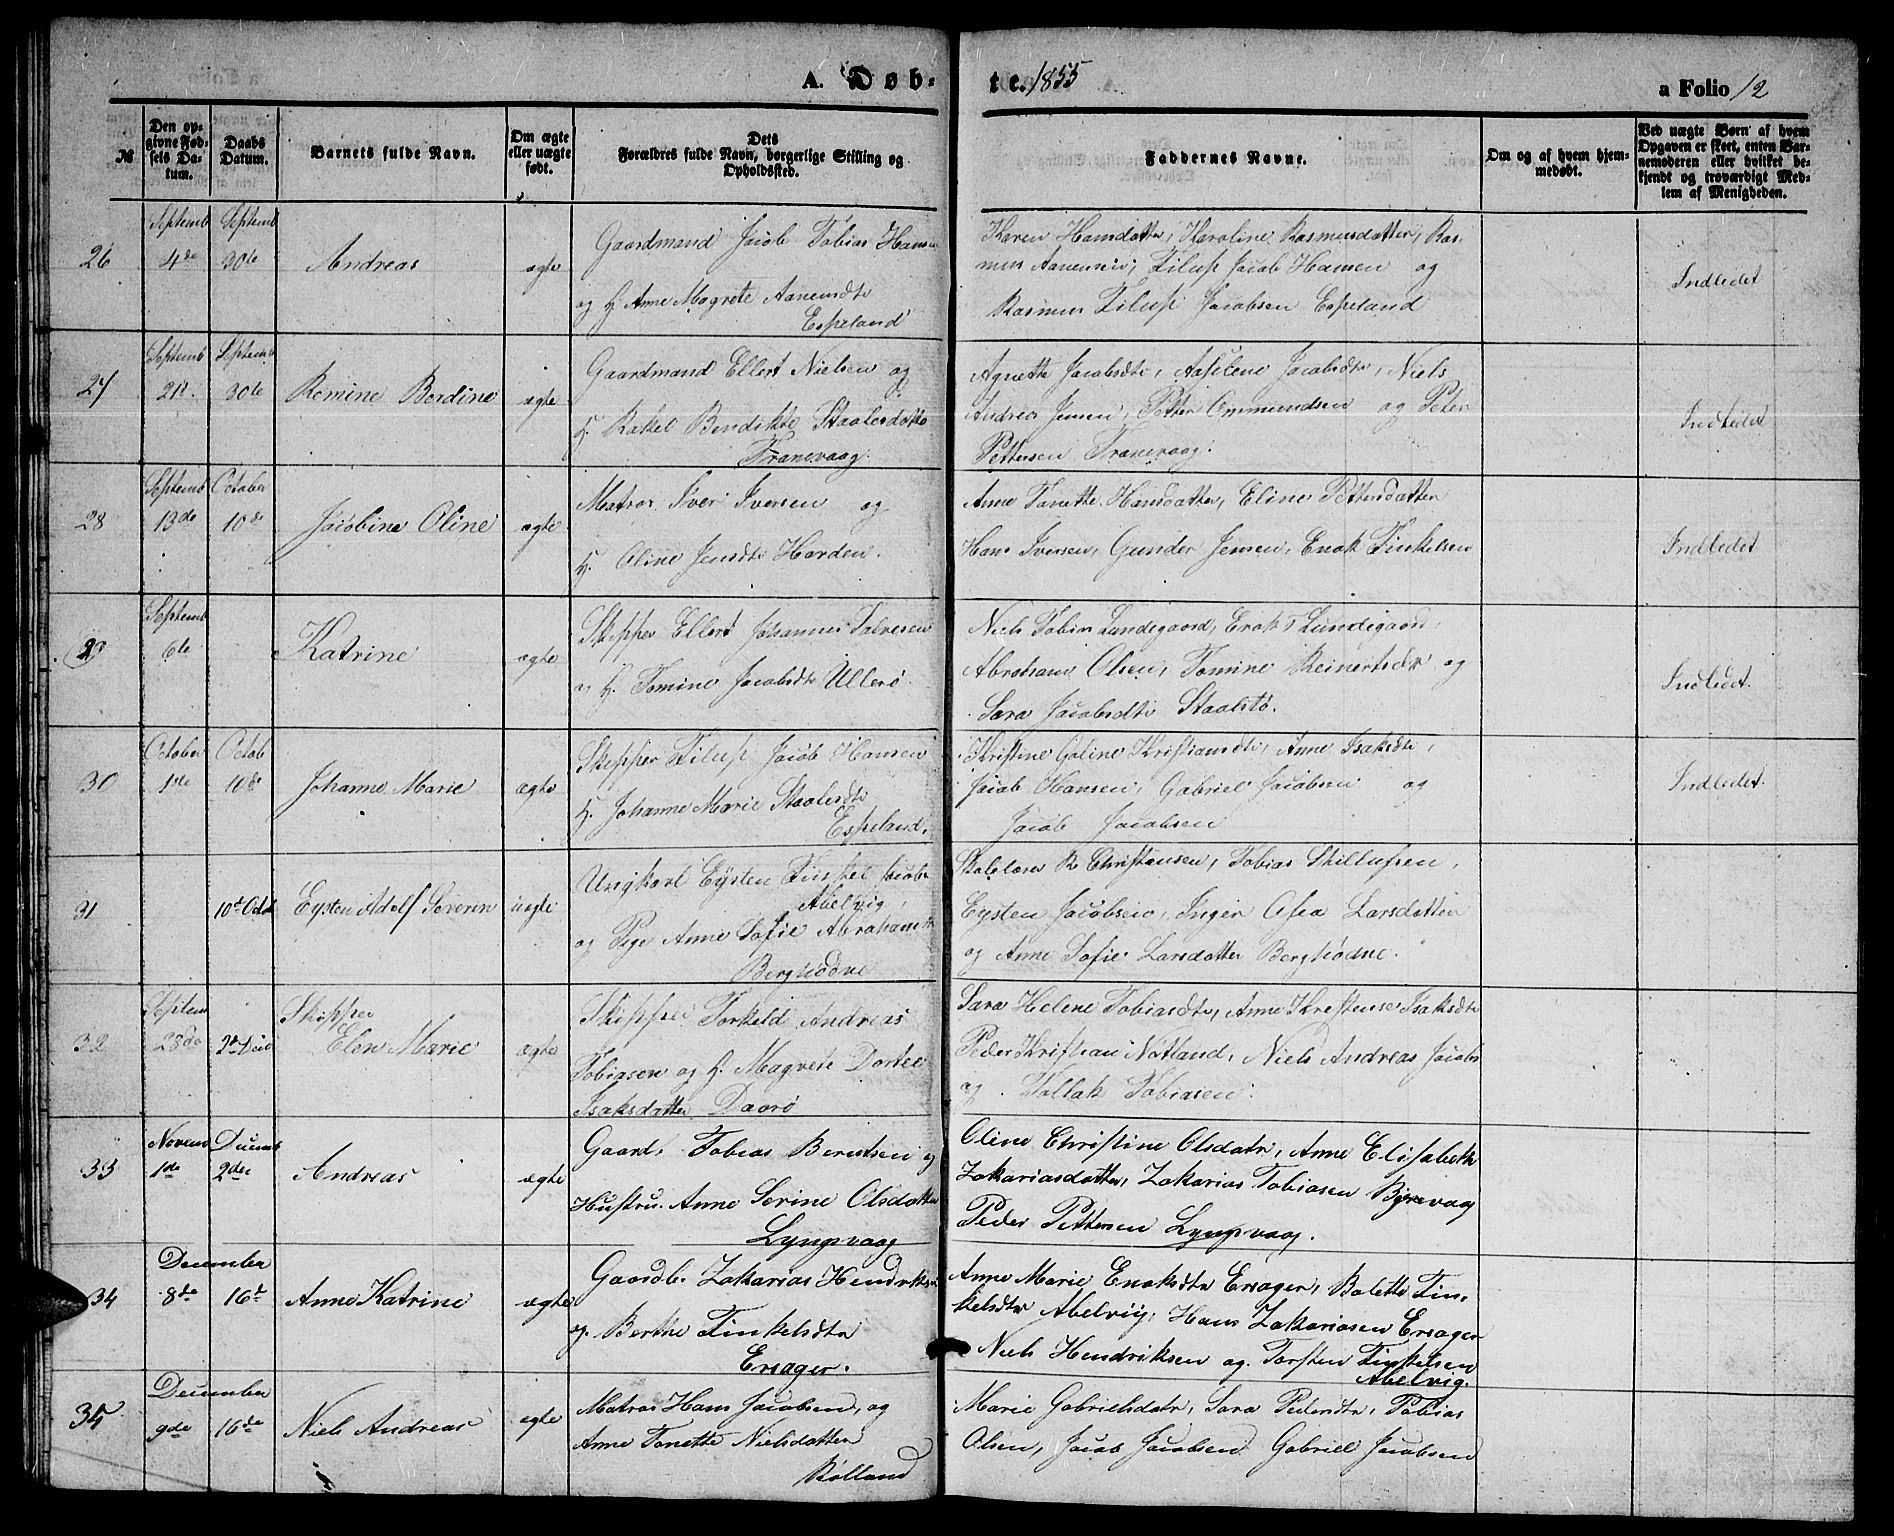 A. Døb-
te. 1855
a Folio 12
№
Den op-
givne Fød-
sels Da-
tum.
Daabs
Datum.
Barnets fulde Navn.
Om ægte
eller uægte
født.
Dets
Forældres fulde Navn, borgerlige Stilling og
Opholdssted.
Faddernes Navne.
Om og af hvem hjem-
medøbt.
Ved uægte Børn af hvem
Opgaven er skeet, enten Bar-
nemoderen eller hvilket be-
kjendt og troværdigt Med-
lem af Menigheden.
26
Septemb
4de
Septemb
30te
Andreas
ægte
Gaardmand Jacob Tobias Hansen
og H. Anne Magrete Aanensdtr
Espeland
Karen Hansdatter, Karoline Rasmusdatter, Ras-
mus Aanensen, Filup Jacob Hansen og
Rasmus Filup Jacobsen Espeland
Indledet
27
Septemb
21.
Septemb
30te
Romine Berdine
ægte
Gaardmand Ellert Nielsen og
H. Rakel Bendikte Staalesdatter
Tranevaag.
Agnette Jacobsdtr, Aaselene Jacobsdtr, Niels
Andreas Jensen, Petter Ommundsen og Peter
Pettersen Tranevaag.
Indledet
28
Septemb
13de
October
10de
Jacobine Oline
ægte
Matros Iver Iversen og
H. Oline Jensdtr Harden.
Anne Tonette Hansdatter, Eline Pettersdatter
Hans Iversen, Gunder Jensen, Enok Finkelsen
Indledet
29
Septemb
6te
Katrine
ægte
Skipper Ellert Johannes Salvesen
og H. Tomine Jacobsdtr Ullerø.
Niels Tobias Lundegaard, Enok T Lundegaard
Abraham Olsen, Tomine Reinertsdtr og
Sara Jacobsdtr Staalstø.
Indledet.
30
October
1ste
Octob
10de
Johanne Marie
ægte
Skipper Filup Jacob Hansen
H. Johanne Marie Staalesdtr
Espeland.
Kristine Goline Kristiansdtr, Anne Isaksdtr,
Jacob Hansen, Gabriel Jacobsen og
Jacob Jacobsen
Indledet.
31
10de Octb
Eysten Adolf Severin
uægte
Ungkarl Eysten Finkel Jacobs
Abelvig,
og Pige Anne Sofie Abrahamsdtr
Berghødne
Skolelærer R Christensen, Tobias Thillufsen,
Eysten Jacobsen, Inger Asea Larsdatter
og Anne Sofie Larsdatter Berghødne.
32
Septem
28de
Skipper
Elen Marie
ægte
Skipper Torkeld Andreas
Tobiasen og H. Magrete Dortee
Isaksdatter Daarø
Sara Helene Tobiasdtr, Anne Kristense Isaksdtr
Peder Kristian Notland, Niels Andreas Jacobs
og Tollak Tobiasen.
33
Novemb
1de
Decemb
2den
Andreas
ægte
Gaardb. Tobias Berntsen og
Hustru. Anne Serine Olsdatter
Lyngsvaag
Oline Christine Olsdatr, Anne Elisabeth
Zakariasdatter, Zakarias Tobiasen Byrevaag
Peder Pettersen Lyngsvaag.
34
December
8de
16d
Anne Katrine
ægte
Gaardb. Zakarias Hendriksen
og Berthe Finkelsdtr
Ersager.
Anne Marie Enoksdtr Ersager, Bolette Fin-
kelsdtr Abelvig, Hans Zakariasen Ersager
Niels Hendriksen og Torsten Finkelsen
Abelvig.
35
December
9de
16de
Niels Andreas
ægte
Matros Hans Jacobsen, og
Anne Tonette Nielsdatter
Rølland
Marie Gabrielsdatr, Sara Pedersdtr, Tobias
Olsen, Jacob Jacobsen Gabriel Jacobsen